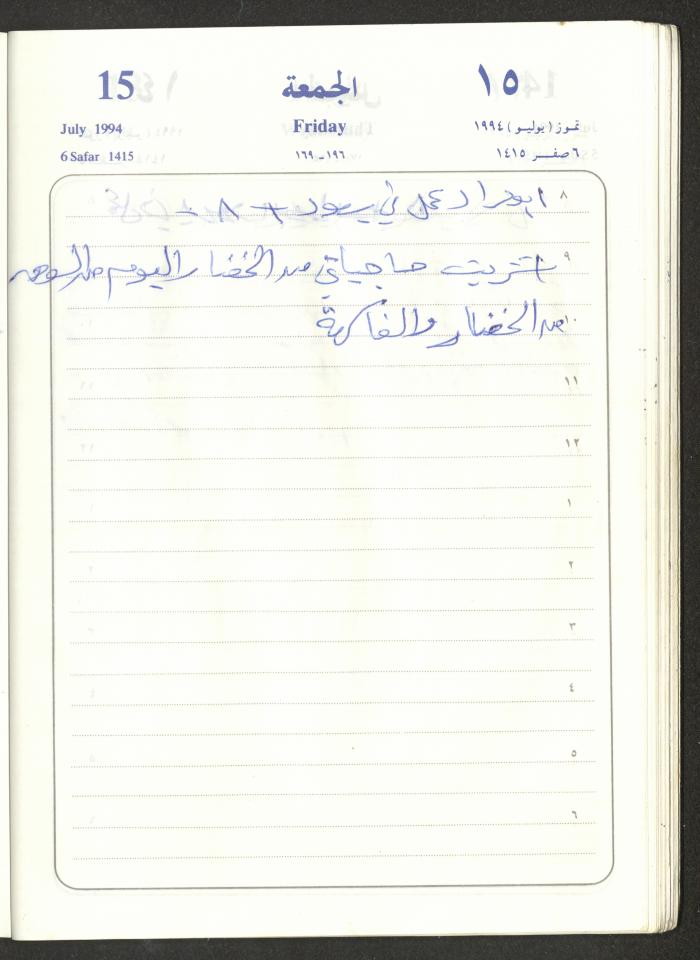 15 الجمعة ١٥
July 1994 Friday تموز (يوليو) ١٩٩٤
6 Safar 1415 ١٩٦ــ١٦٩ ٦ صفر ١٤١٥
٨ عمل في
٩ اشتريت حاجياتي من الخضار اليوم من السوق
١٠ من الخضار والفاكهة
١١
١٢
١
٢
٣
٤
٥
٦